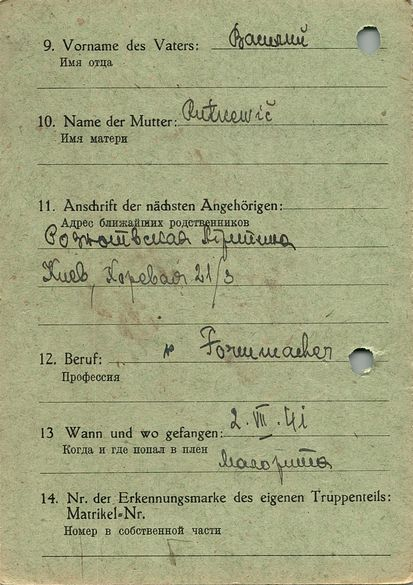 9. Vorname des Vaters: Василий
Имя отца
10. Name der Mutter: Rutkewič
Имя матери
11. Anschrift der nächsten Angehörigen:
Адрес ближайших родственников
Киев, 21/3
12. Beruf: Formmacher
Профессия
13 Wann und wo gefangen: 2. VIII. 41
Когда и где попал в плен
14. Nr. der Erkennungsmarke des eigenen Truppenteils:
Matrikel-Nr.
Номер в собственной части